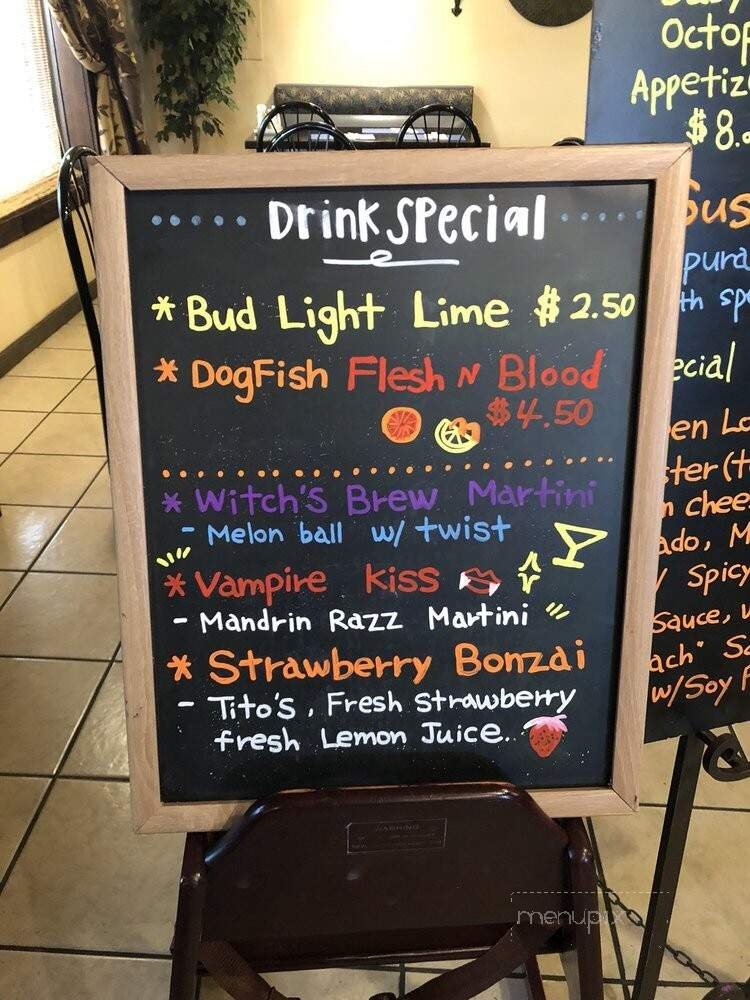 Drink Special
* Bud Light Lime $ 2.50
* DogFish Flesh N Blood
$4.50
* Witch's Brew Martini
- Melon ball w/ twist
* Vampire Kiss
- Mandrin Razz Martini
* Strawberry Bonzai
- Tito's, Fresh Strawberry
fresh Lemon Juice.
WARNING
Octop
Appetiz
$8.
Sus
pura
th sp
ecial
en Lo
ster (t
n chee
ado, M
/ Spicy
Sauce, w
ach" Sa
w/Soy F
menupix